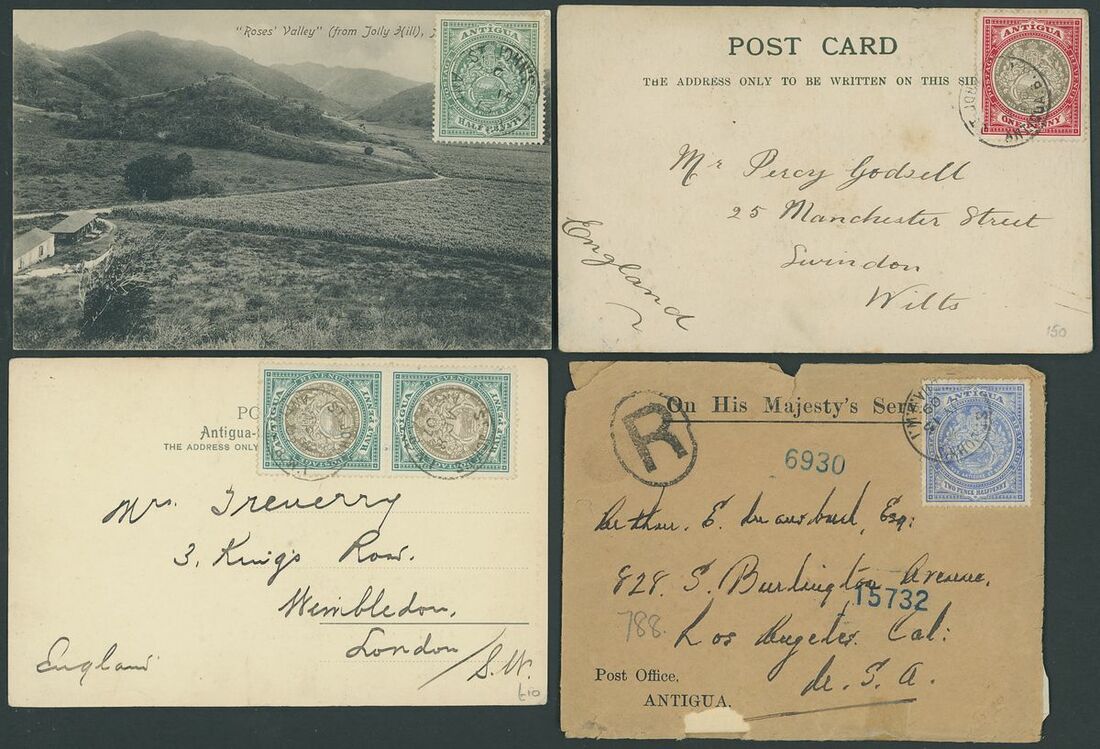 "Roses' Valley" (from Jolly Hill),
ANTIGUA
HALF PENNY
POST CARD
THE ADDRESS ONLY TO BE WRITTEN ON THIS SID
ANTIGUA
POSTAGE & REVENUE
ONE PENNY
ANTIGUA
Mr Percy Godsell
25 Manchester Street
Swindon
Wilts
England
150
PO
Antigua-
THE ADDRESS ONLY
ANTIGUA
REVENUE
HALF PENNY
POSTAGE
ANTIGUA
REVENUE
HALF PENNY
POSTAGE
Mrs. Treverry
3, Kings Row.
Wimbledon,
London
S.W.
England
£10
On His Majesty's Ser
R
6930
ANTIGUA
TWO PENCE HALFPENNY
Arthur. E. Esq:
828 S. Burlington Avenue,
15732
788.
Los Angeles. Cal:
U. S. A.
Post Office,
ANTIGUA.